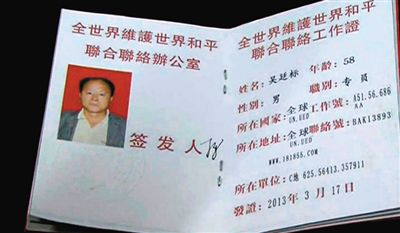 全世界維護世界和平
聯合聯絡辦公室
签发人
全世界維護世界和平
聯合聯絡工作證
姓名 吴廷标 年齡: 58
性别: 男 職别: 专員
所在國家: 全球 工作號: A51.56.686
UN.UED AA
所在地址: 全球 聯絡號: BAK13893
UN.UED
www.181855.COM
所在單位: C地 625.56413.357911
發證: 2013年 3 月 17日